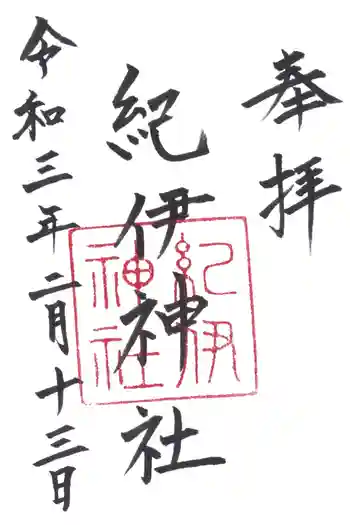 奉拝
紀伊神社
紀伊
神社
令和三年二月十三日